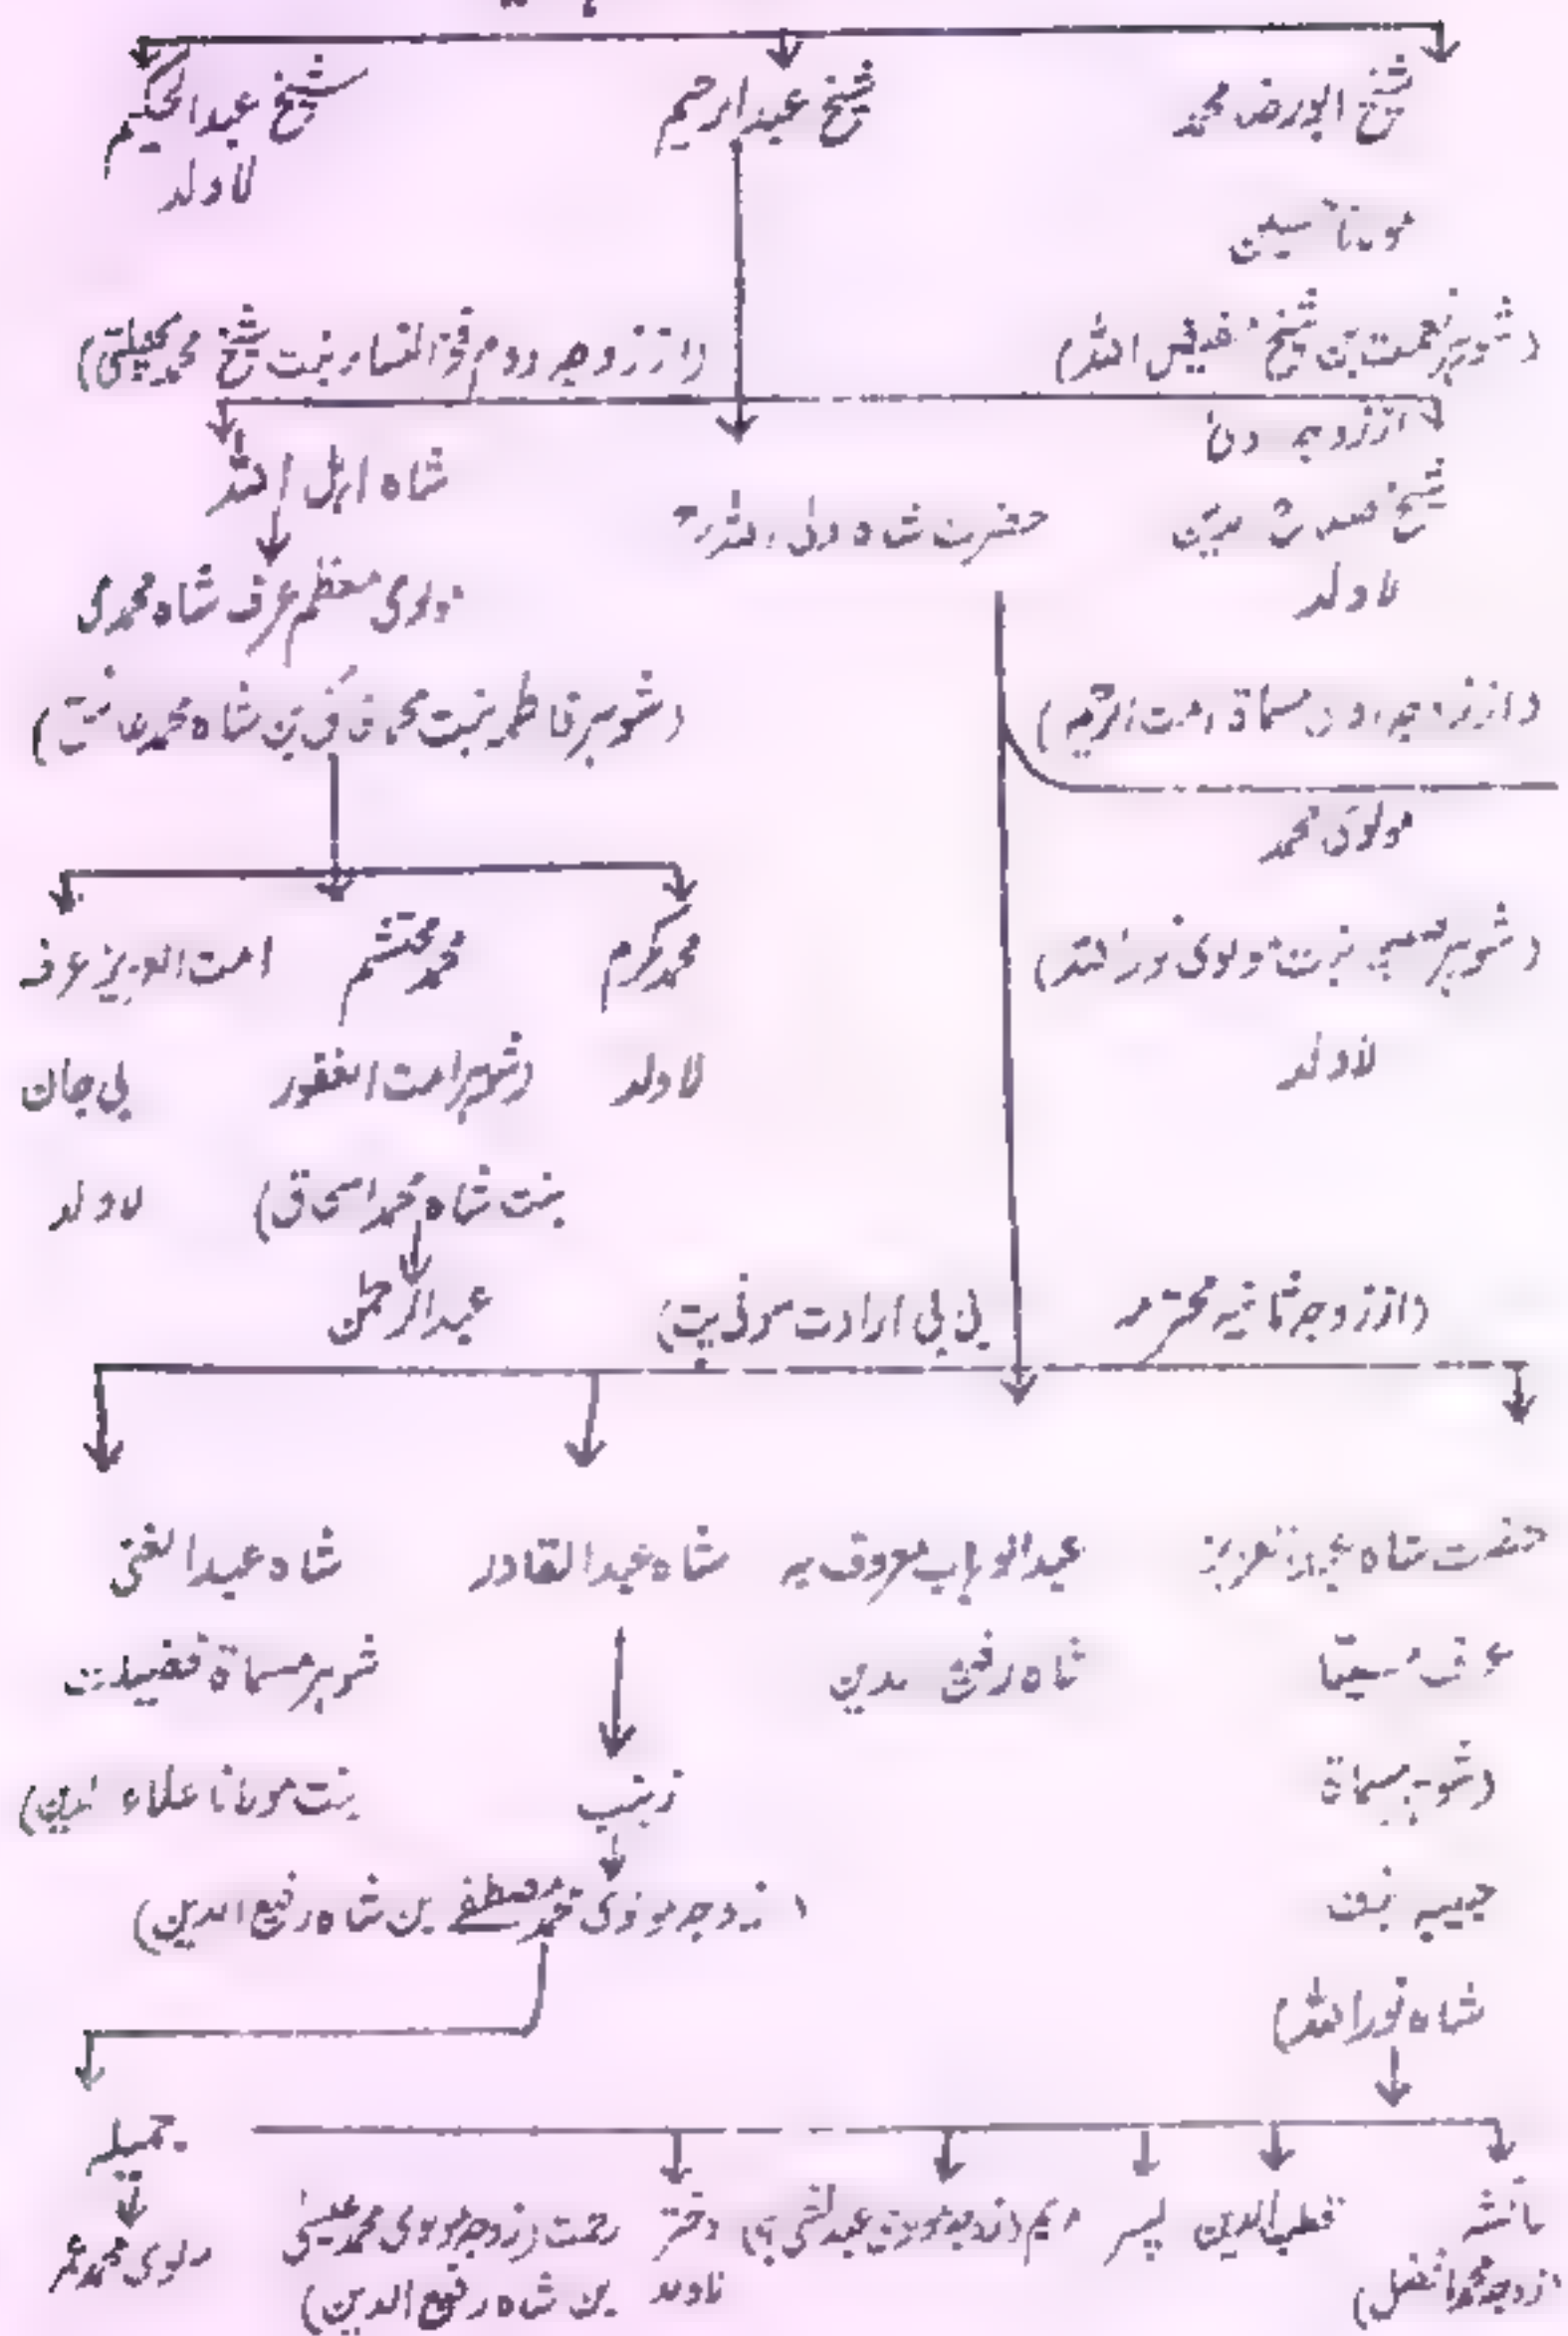 شیخ ابورضا محمد
شیخ عبدالرحیم
شیخ عبدالحکیم
لاولد
(شوہر نعمت بن شیخ
(از زوجہ دوم فخرالنساء بنت شیخ محمد پھلتی)
از زوجہ
شیخ
لاولد
حضرت شاہ ولی اللہؒ
شاہ اہل اللہ
مولوی معظم عرف شاہ محمدی
(شوہر فاطمہ بنت محمد فائق بن شاہ محمد عاشق)
(از زوجہ اولی مسماۃ امت الرحیم)
مولوی محمد
(شوہر صبیہ بنت مولوی نور اللہ)
لاولد
محمد مکرم
لاولد
محمد محتشم
(شوہر امت الغفور
بنت شاہ محمد اسحاق)
عبدالرحمٰن
امت العزیز عرف
بی جان
لاولد
(از زوجہ ثانیہ محترمہ
بی بی ارادت سونی پتی)
حضرت شاہ عبدالعزیز
عرف مسیتا
(شوہر مسماۃ
حبیبہ بنت
شاہ نور اللہ)
عبدالوہاب معروف بہ
شاہ رفیع الدین
شاہ عبدالقادر
زینب
(زوجہ مولوی محمد مصطفےٰ بن شاہ رفیع الدین)
شاہ عبدالغنی
شوہر مسماۃ فضیلت
بنت مولانا علاء الدین)
جمیلہ
مولوی محمد عمر
عائشہ
(زوجہ محمد افضل)
قطب الدین
پسر
مریم (زوجہ مولوی عبدالحئی)
دختر
لاولد
رحمت (زوجہ مولوی محمد عیسیٰ
بن شاہ رفیع الدین)